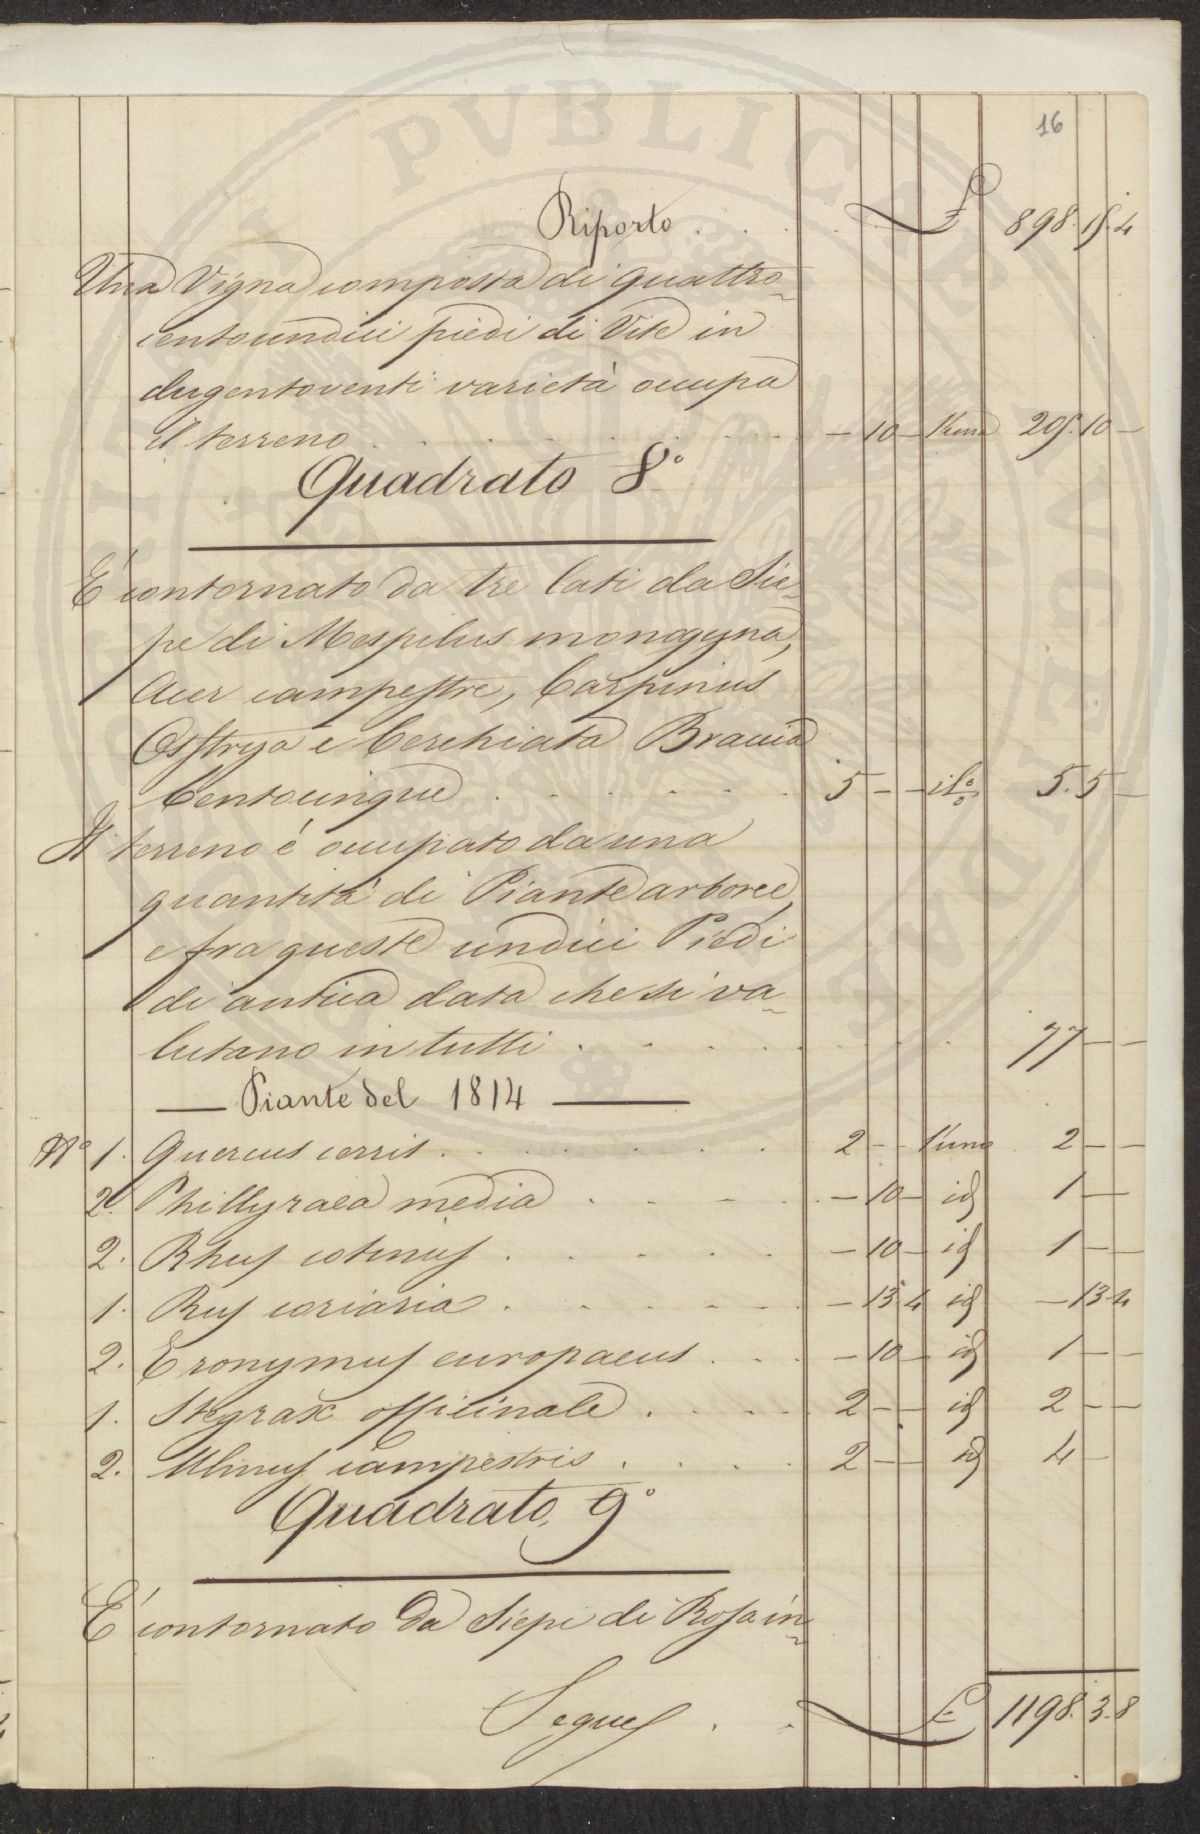 16
Riporto . . . . £ 898. 15. 4
Una Vigna composta di quattro-
centoundici piedi di Vite in
dugentoventi varietà occupa
il terreno . . . . — 10 — l'una 205. 10 —
Quadrato 8°
E' contornato da tre lati da Sie-
pe di Mespilus monogyna,
Acer campestre, Carpinus
Osstrya e Cerchiata Braccia
Centocinque . . . . 5 — — il % 5. 5 —
Il terreno è occupato da una
quantità di Piante arboree,
e fra queste undici Piedi
di antica data che si va-
lutano in tutti . . . . 77 — —
— Piante del 1814 —
N° 1. Quercus cerris . . . . 2 — — l'una 2 — —
2. Phillyraea media . . . . — 10 — id 1 — —
2. Rhus cotinus . . . . — 10 — id 1 — —
1. Rus coriaria . . . . — 13 4 id — 13 4
2. Eronymus europaeus . . . — 10 — id 1 — —
1. Stegrax officinale . . . . 2 — — id 2 — —
2. Ulmus campestris . . . . 2 — — id 4 —
Quadrato 9°
E' contornato da Siepi di Rosa in-
Segue . . £ 1198. 3. 8